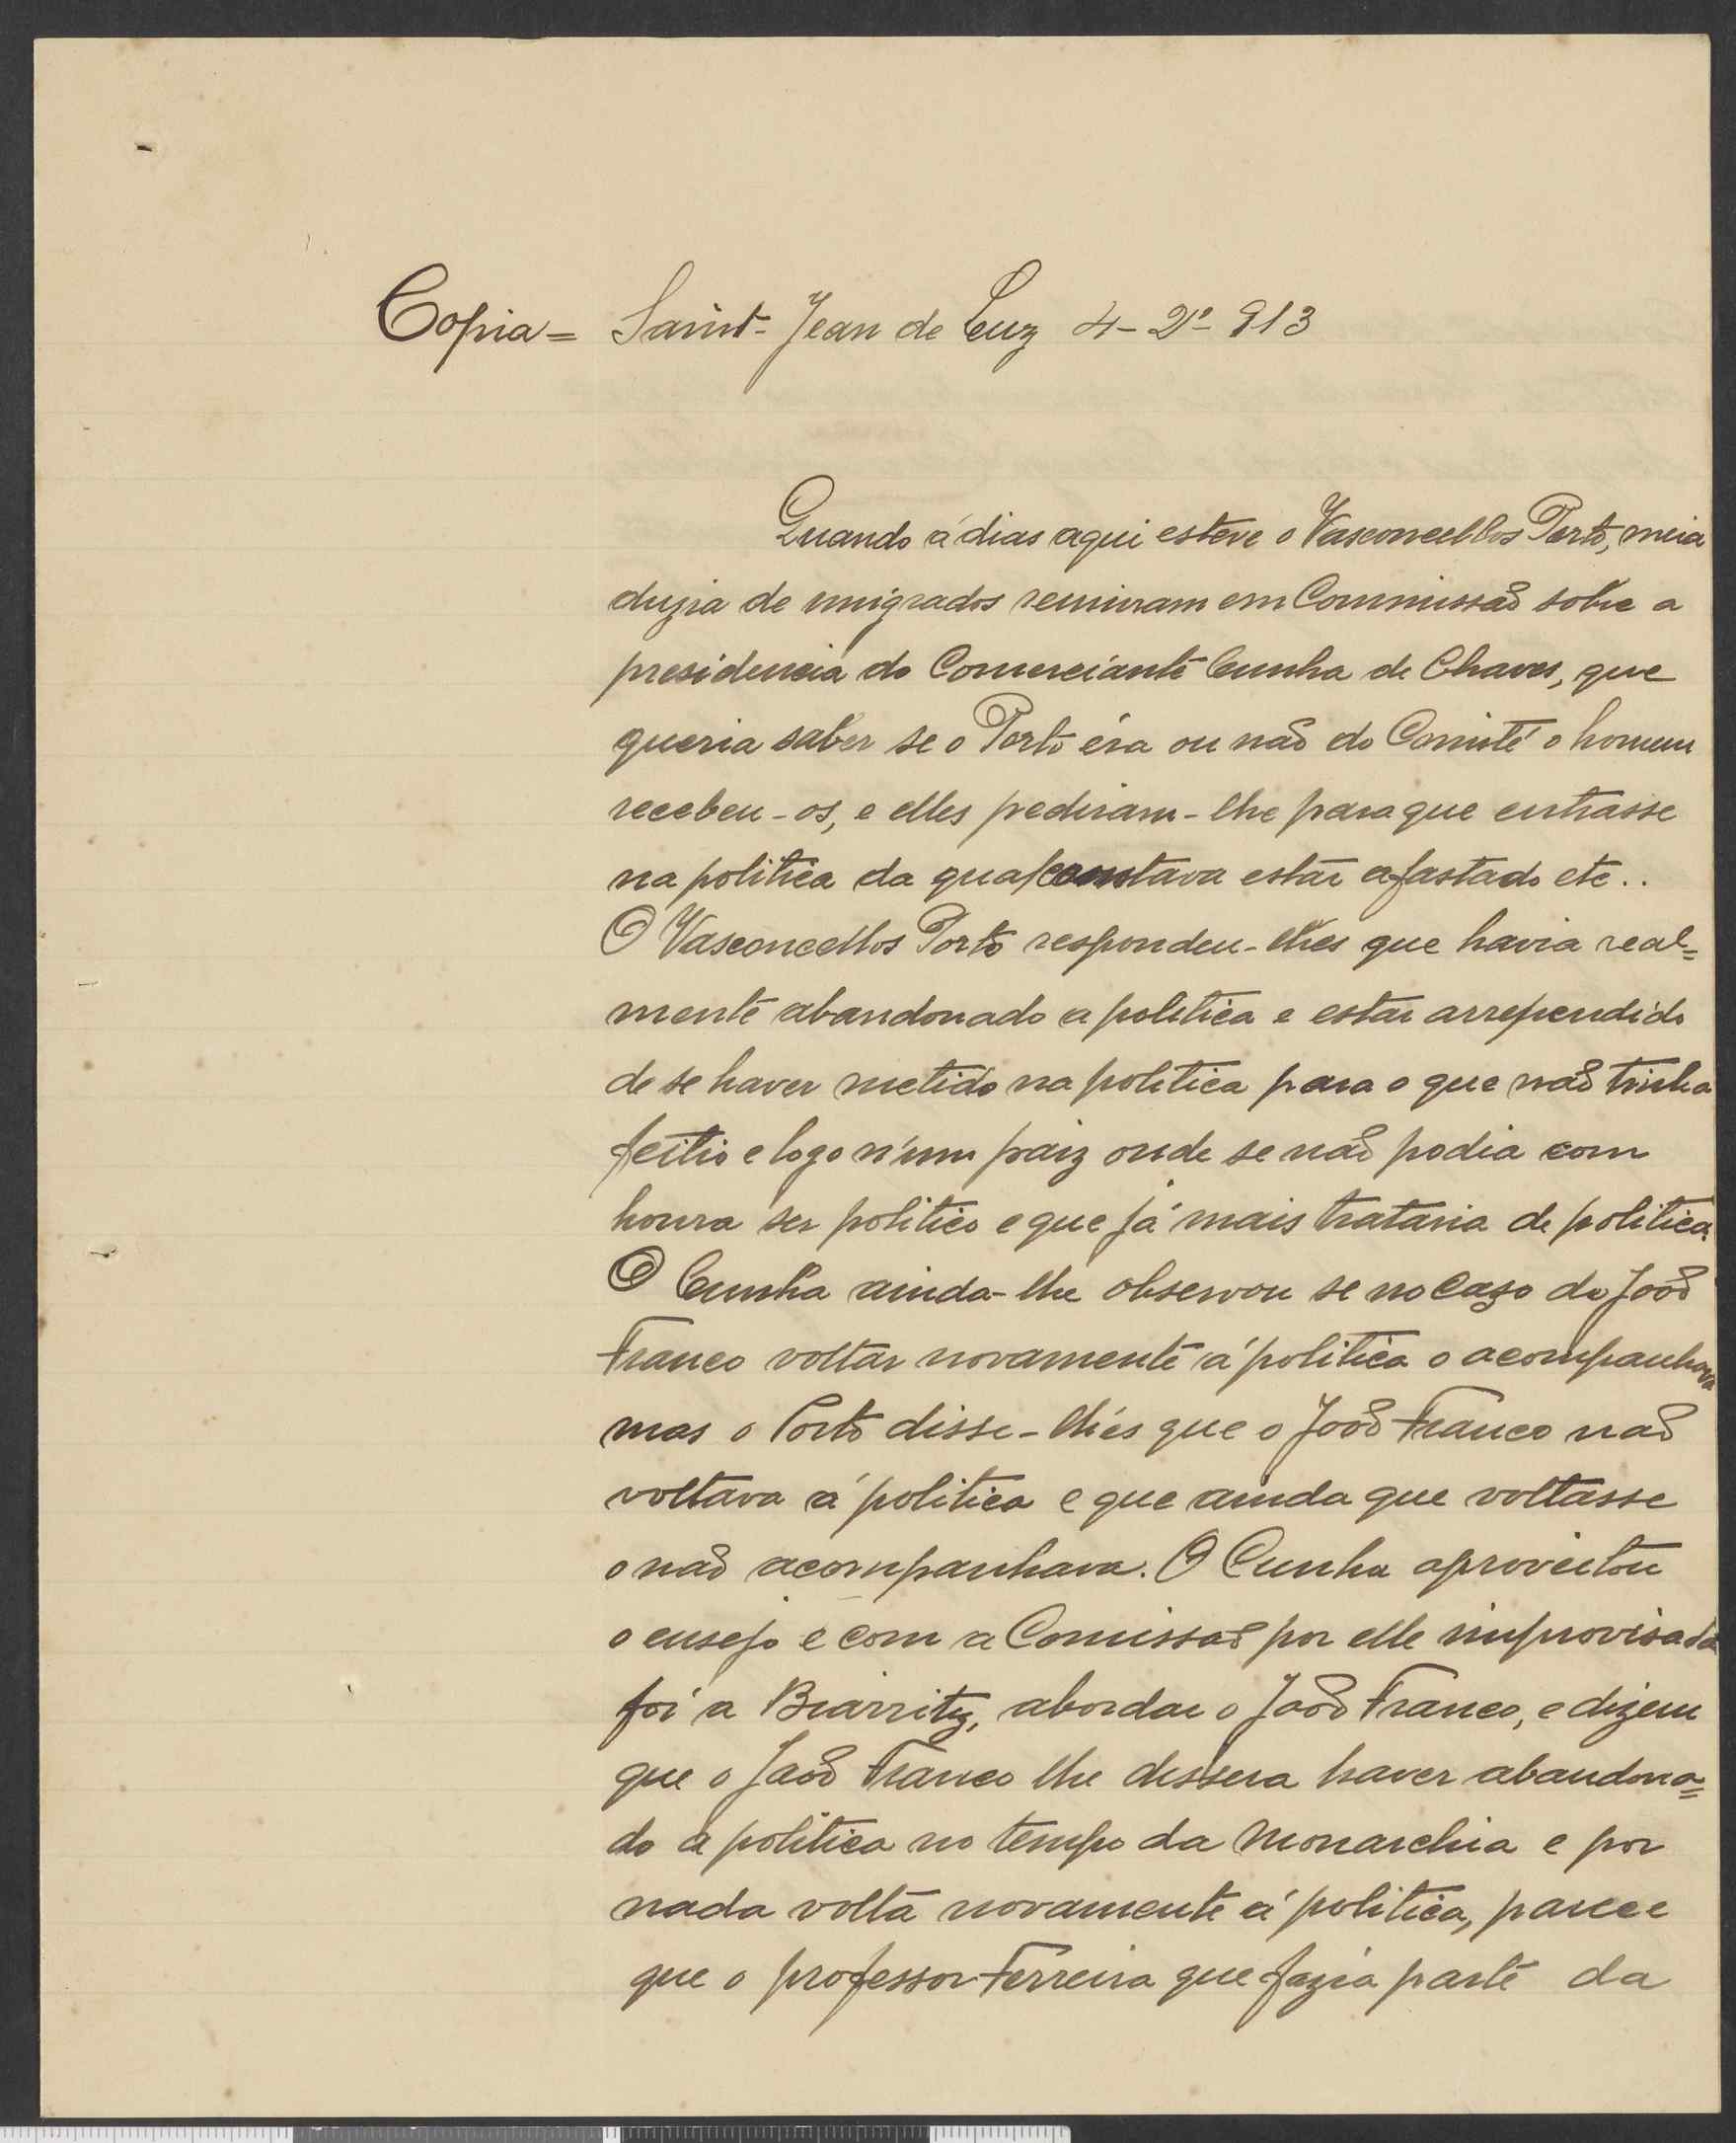 Copia= Saint-Jean de Luz 4-2º-913
Quando á dias aqui esteve o Vasconcellos Porto, meia
duzia de emigrados reuniram em Commissaõ sobre a
presidencia do Comerciante Cunha de Chaves, que
queria saber se o Porto éra ou naõ do Comité o homem
recebeu-os, e elles pediram-lhe para que entrasse
na politica da qual constava estar afastado etc..
O Vasconcellos Porto respondeu-lhes que havia real=
mente abandonado a politica e estar arrependido
de se haver metido na politica para o que naõ tinha
feitio e logo n'um paiz onde se naõ podia com
honra ser politico e que já mais trataria de politica.
O Cunha ainda-lhe observou se no cazo do Joaõ
Franco voltar novamente á politica o acompanhava
mas o Porto disse-lhes que o Joaõ Franco naõ
voltava á politica e que ainda que voltasse
o naõ acompanhava. O Cunha aproveitou
o ensejo e com a Comissaõ por elle improvisada
foi a Biarritz, abordar o Joaõ Franco, e dizem
que o Joaõ Franco lhe dissera haver abandona=
do a politica no tempo da Monarchia e por
nada volta novamente á politica, parece
que o professor Ferreira que fazia parte da